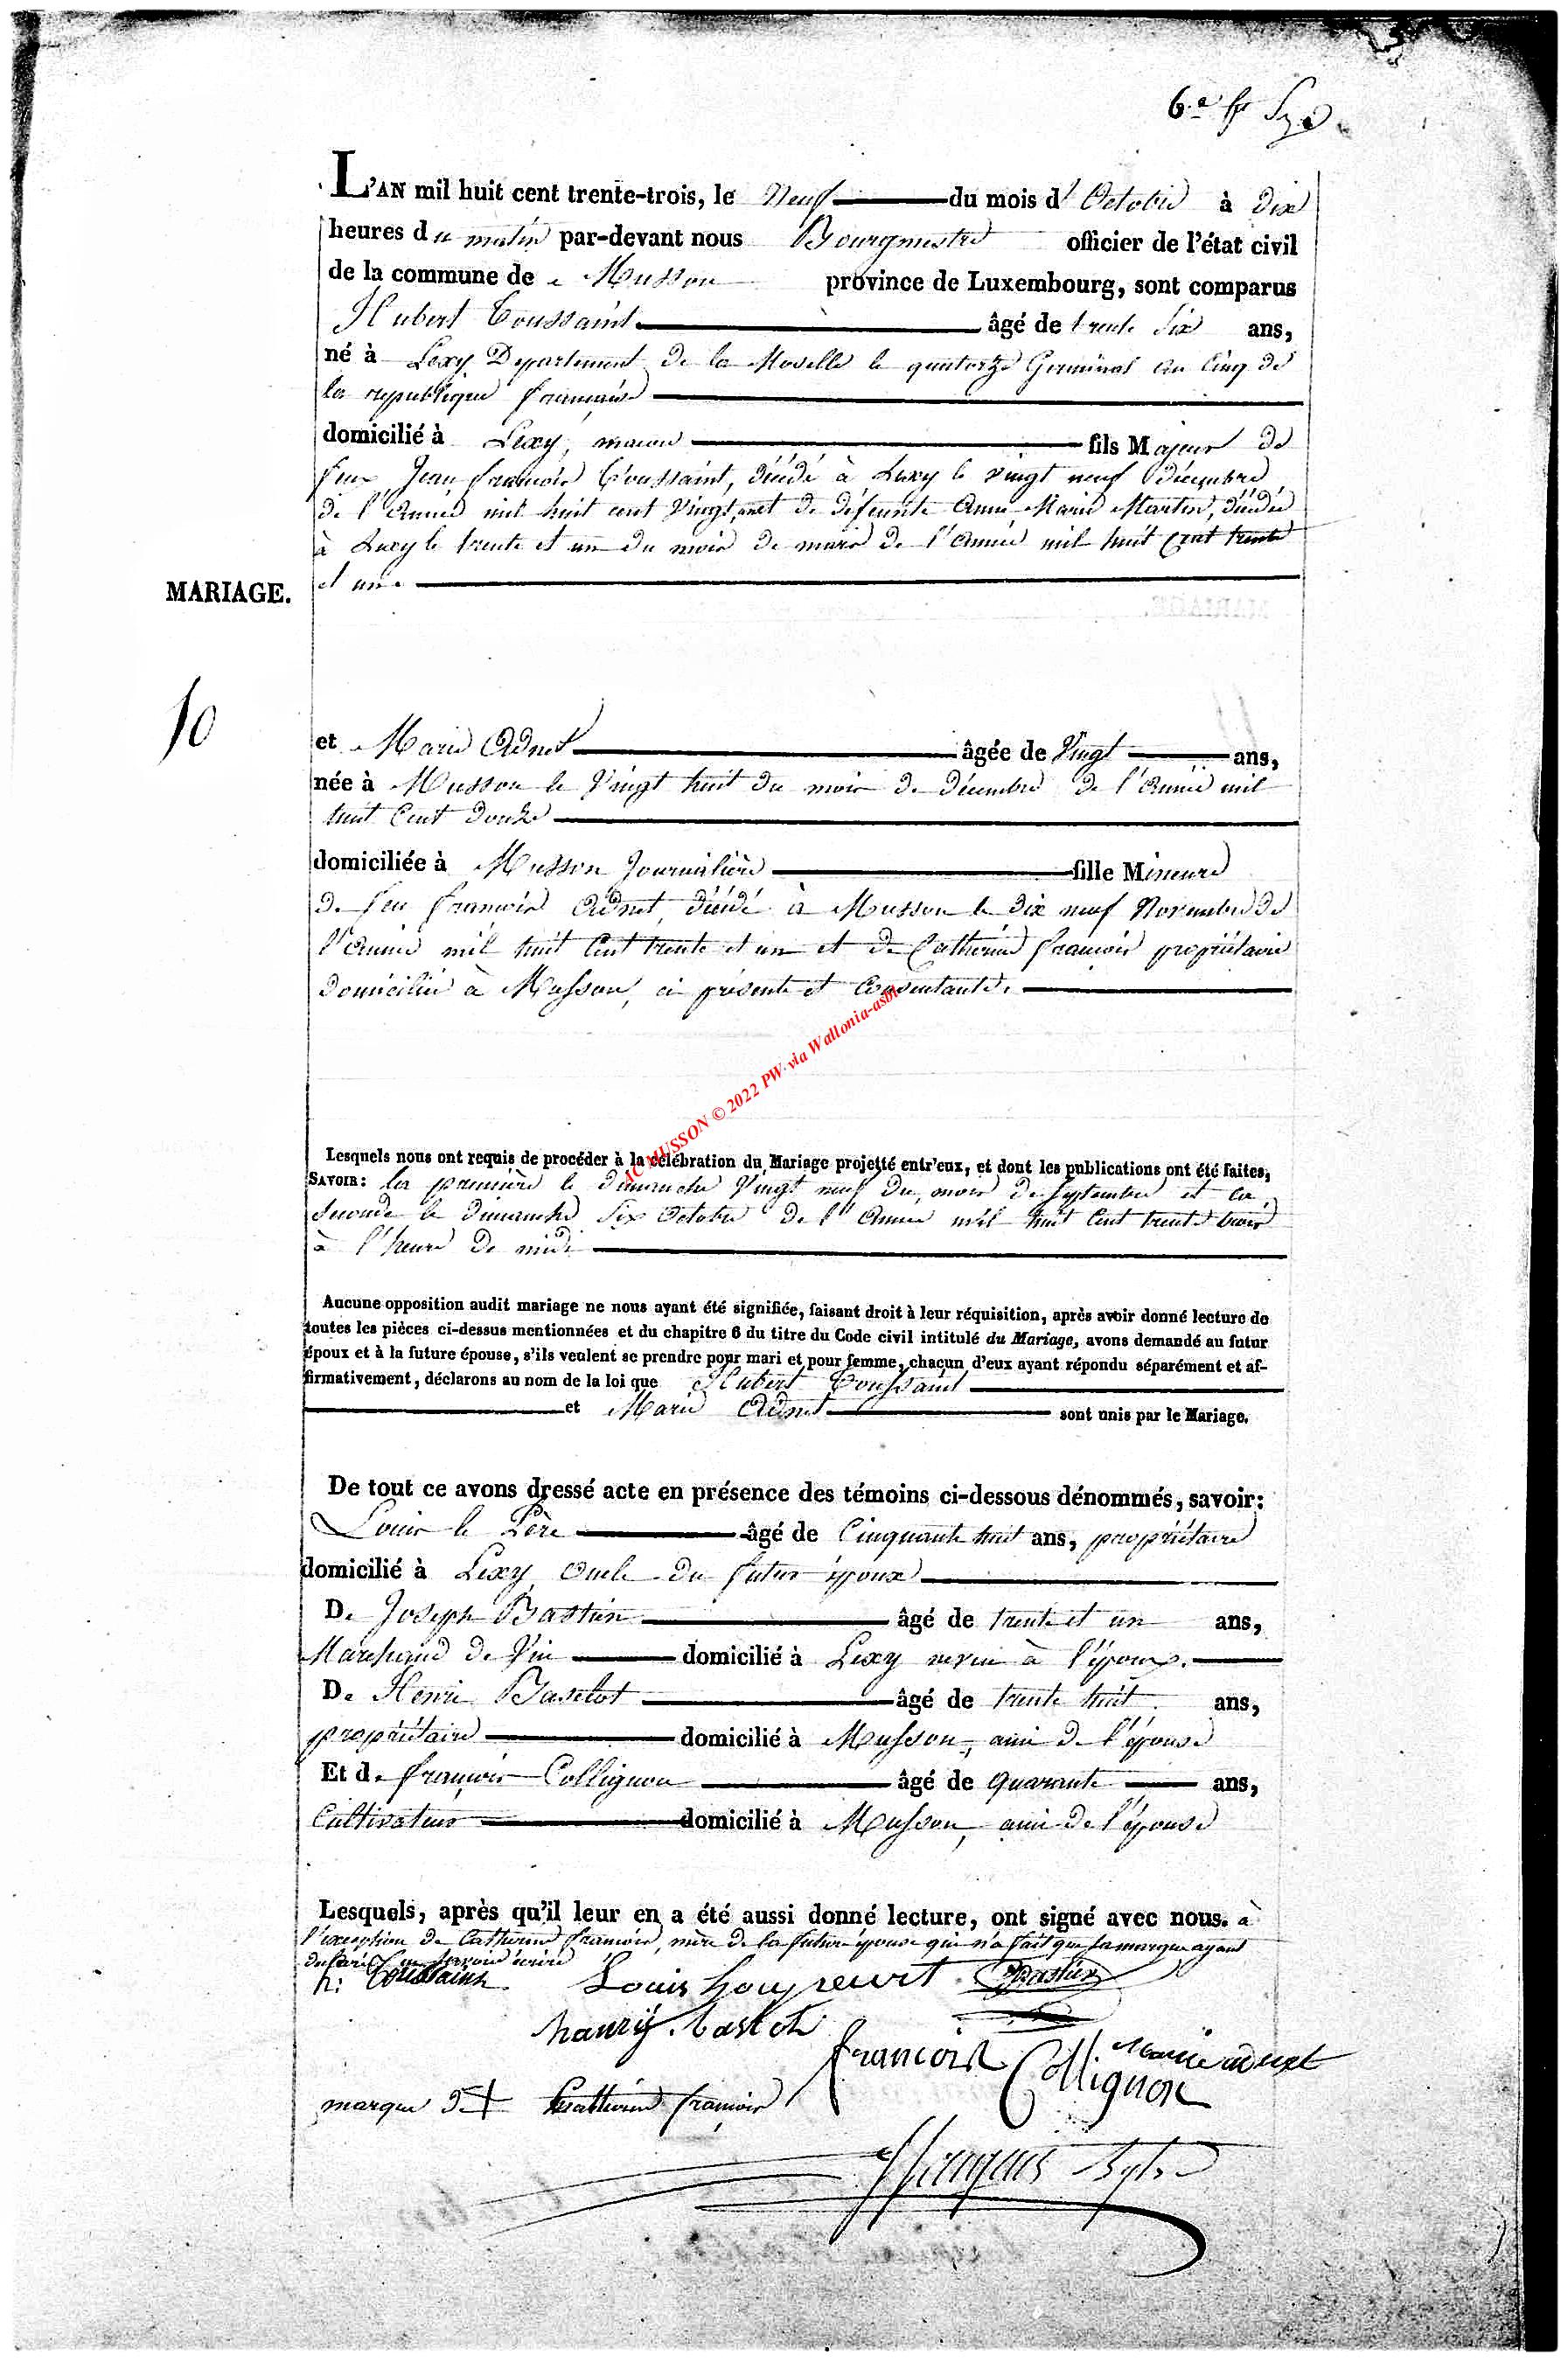 6.e
L'AN mil huit cent trente-trois, le Neuf du mois d'Octobre à dix
heures du matin par-devant nous Bourgmestre officier de l'état civil
de la commune de Musson province de Luxembourg, sont comparus
Hubert Toussaint âgé de trente six ans,
né à Lexy Departement de la Moselle le quatorze Germinal an Cinq de
la republique francaise
domicilié à Lexy, macon fils Majeur de
feu Jean francois Toussaint, décédé à Lexy le vingt neuf décembre
de l'année mil huit cent Vingt, et de défunte Anne Marie Martin, décédée
à Lexy le trente et un du mois de mars de l'année mil huit Cent trente
et un.
MARIAGE.
10
et Marie Adnet âgée de Vingt ans,
née à Musson le Vingt huit du mois de décembre de l'année mil
huit Cent douze
domiciliée à Musson Journalière fille Mineure
de feu francois Adnet, décédé à Musson le dix neuf Novembre de
l'année mil huit Cent trente et un et de Catherine francois propriétaire
domiciliée à Musson, ci présente et Consentante.
AC MUSSON © 2022 PW via Wallonia-asbl
Lesquels nous ont requis de procéder à la célébration du Mariage projetté entr'eux, et dont les publications ont été faites,
SAVOIR: la première le dimanche Vingt neuf du mois de Septembre et la
seconde le dimanche Six Octobre de l'année mil huit Cent trente trois
à l'heure de midi
Aucune opposition audit mariage ne nous ayant été signifiée, faisant droit à leur réquisition, après avoir donné lecture de
toutes les pièces ci-dessus mentionnées et du chapitre 6 du titre du Code civil intitulé du Mariage, avons demandé au futur
époux et à la future épouse, s'ils veulent se prendre pour mari et pour femme, chacun d'eux ayant répondu séparément et af-
firmativement, déclarons au nom de la loi que Hubert Toussaint
et Marie Adnet sont unis par le Mariage.
De tout ce avons dressé acte en présence des témoins ci-dessous dénommés, savoir:
Louis le Père âgé de Cinquante huit ans, propriétaire
domicilié à Lexy, oncle du futur époux
De Joseph Bastien âgé de trente et un ans,
Marchand de Vin domicilié à Lexy neveu à l'époux.
De Henri Baselot âgé de trente huit ans,
propriétaire domicilié à Musson, ami de l'épouse
Et de françois Collignon âgé de quarante ans,
Cultivateur domicilié à Musson, ami de l'épouse
Lesquels, après qu'il leur en a été aussi donné lecture, ont signé avec nous. à
l'exception de Catherine francois, mère de la future épouse qui n'a fait que sa marque ayant
déclaré ne savoir écrire
h: Toussaint Louis Bastien
hanrÿ
francois Collignon Marie adnet
marque de + Catherine francois